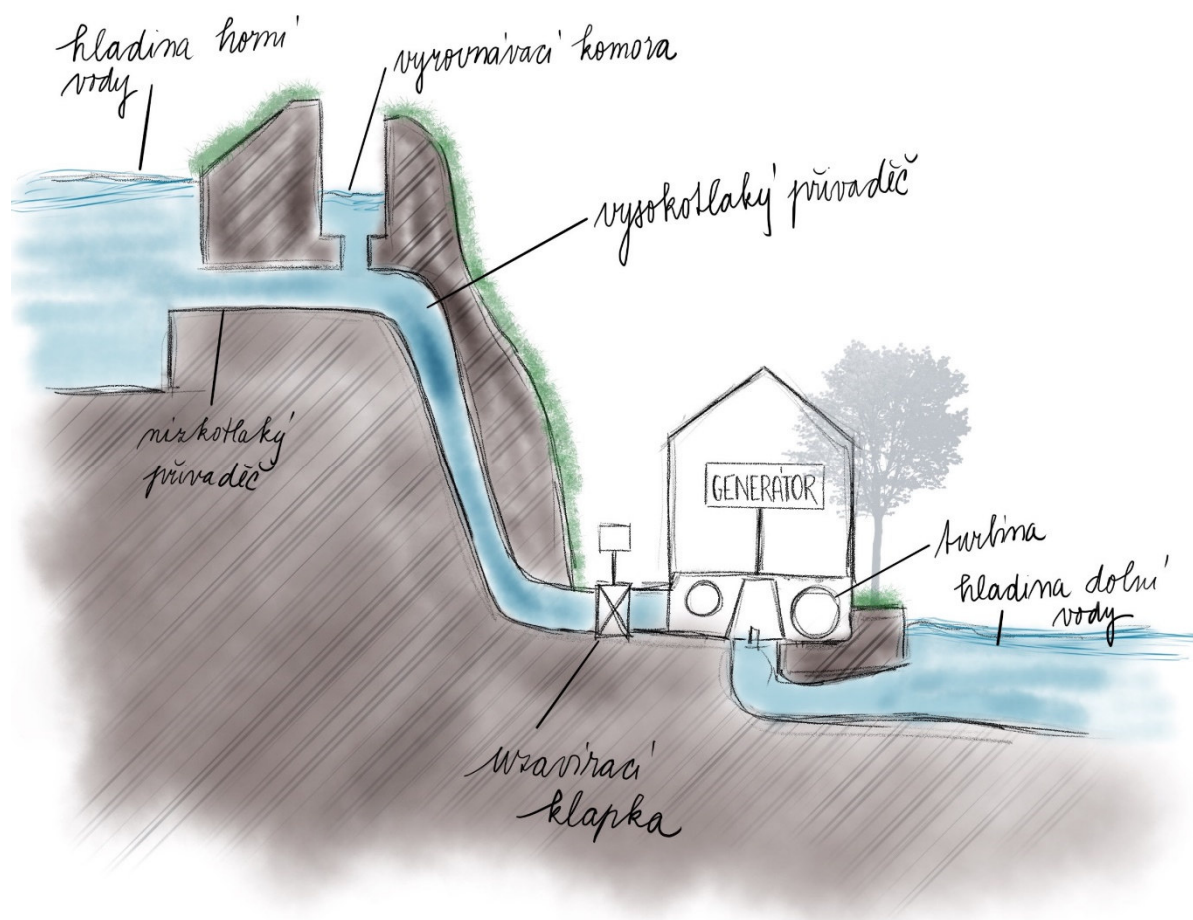 hladina horní
vody
vyrovnávací komora
vysokotlaký přivaděč
nizkotlaký
přivaděč
GENERÁTOR
turbína
hladina dolní
vody
uzavírací
klapka